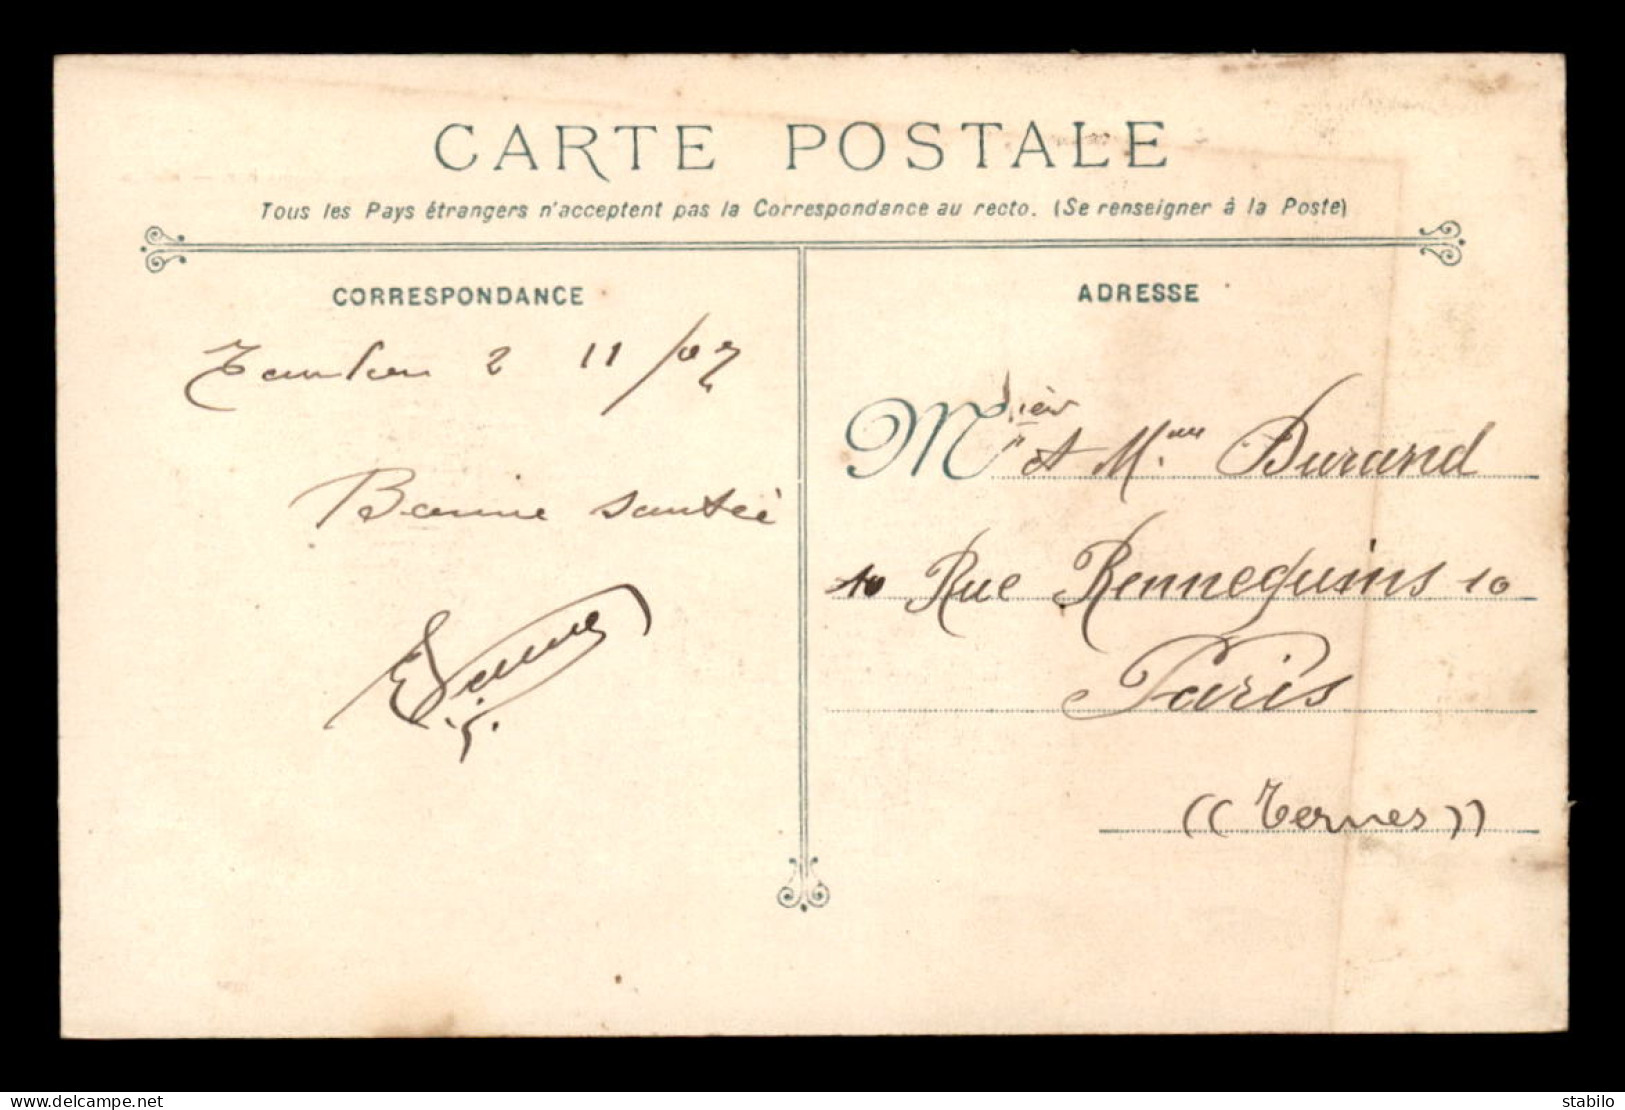 CARTE POSTALE
Tous les Pays étrangers n'acceptent pas la Correspondance au recto. (Se renseigner à la Poste)
CORRESPONDANCE
Toulon 2 11/07
Bonne santé
ADRESSE
M et Mme Durand
10 Rue Rennequins 10
Paris
((Ternes))
delcampe.net
stabilo